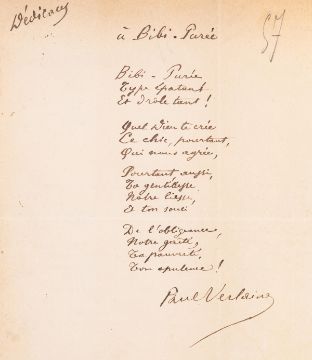 Dédicaces
57
à Bibi-Purée
Bibi-Purée
Type épatant
Et drôle tant !
Quel Dieu te crée
Ce chic, pourtant,
Qui nous agrée,
Pourtant aussi,
Ta gentillesse
Notre liesse,
Et ton souci
De l'obligeance,
Notre gaîté,
Ta pauvreté,
Ton opulence !
Paul Verlaine